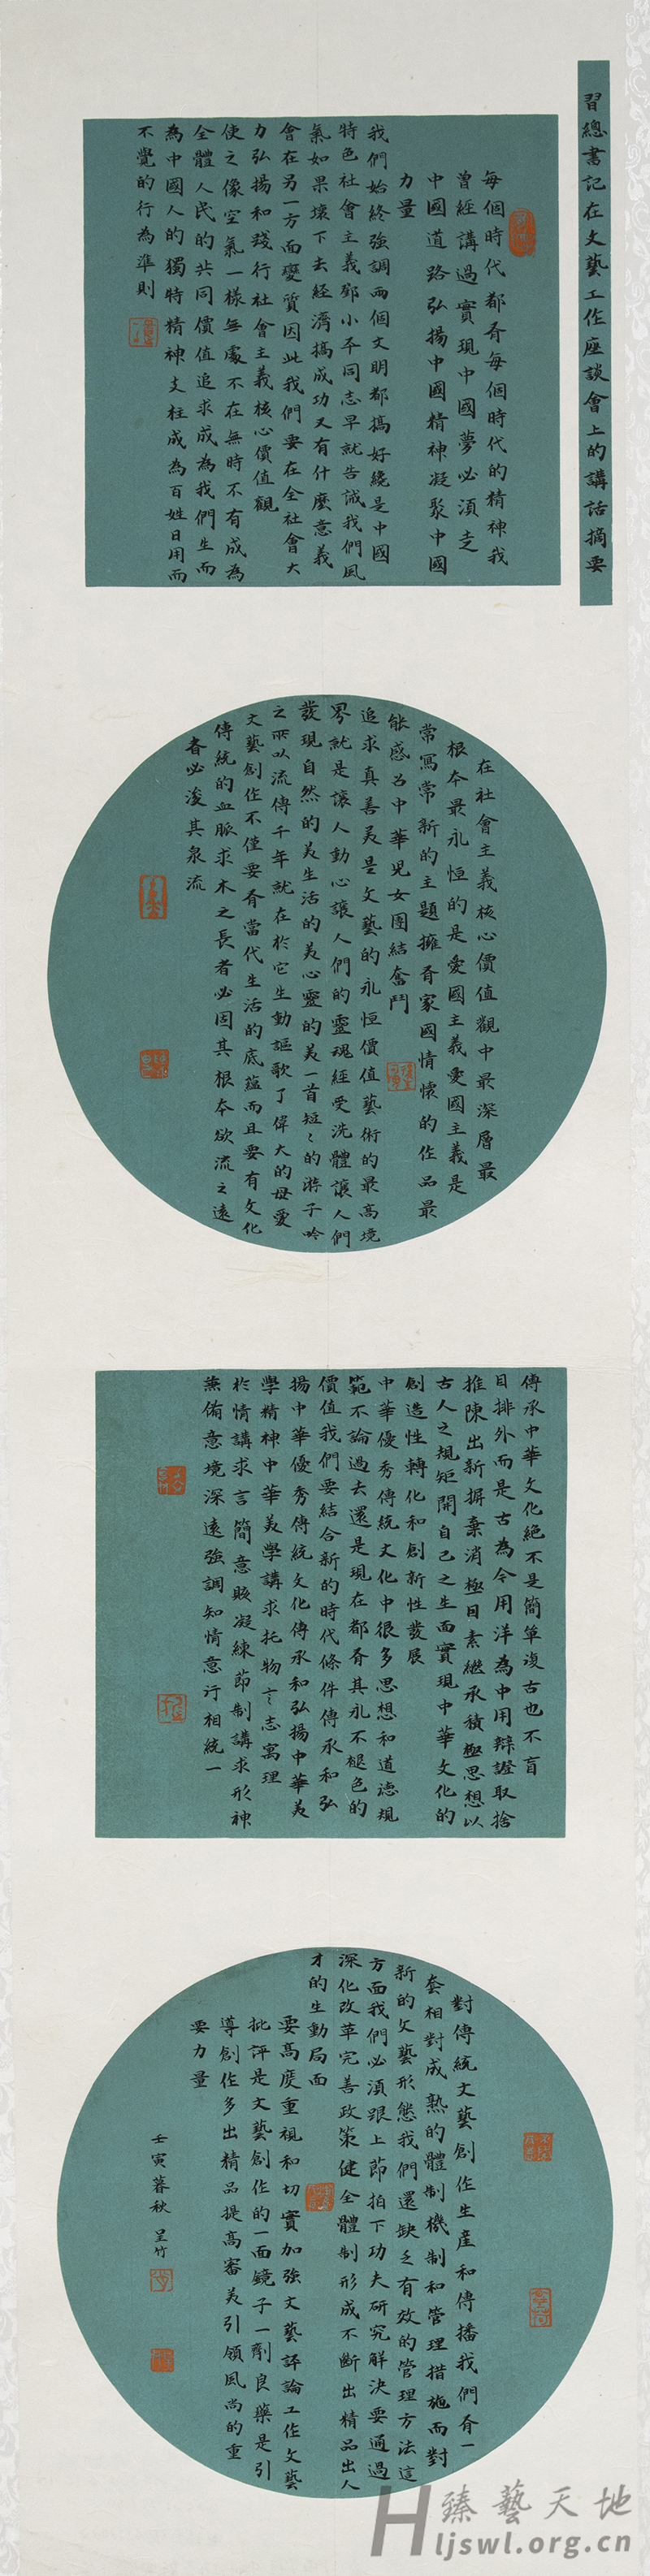 習總書記在文藝工作座談會上的講話摘要
每個時代都有每個時代的精神我
曾經講過實現中國夢必須走
中國道路弘揚中國精神凝聚中國
力量
我們始終強調兩個文明都搞好纔是中國
特色社會主義鄧小平同志早就告誡我們風
氣如果壞下去經濟搞成功又有什麼意義
會在另一方面變質因此我們要在全社會大
力弘揚和踐行社會主義核心價值觀
使之像空氣一樣無處不在無時不有成為
全體人民的共同價值追求成為我們生而
為中國人的獨特精神支柱成為百姓日用而
不覺的行為準則
在社會主義核心價值觀中最深層最
根本最永恒的是愛國主義愛國主義是
常寫常新的主題擁有家國情懷的作品最
能感召中華兒女團結奮鬥
追求真善美是文藝的永恒價值藝術的最高境
界就是讓人動心讓人們的靈魂經受洗體讓人們
發現自然的美生活的美心靈的美一首短〻的游子吟
之所以流傳千年就在於它生動謳歌了偉大的母愛
文藝創作不僅要有當代生活的底蘊而且要有文化
傳統的血脈求木之長者必固其根本欲流之遠
者必浚其泉流
傳承中華文化絕不是簡單復古也不盲
目排外而是古為今用洋為中用辯證取捨
推陳出新摒棄消極因素繼承積極思想以
古人之規矩開自己之生面實現中華文化的
創造性轉化和創新性發展
中華優秀傳統文化中很多思想和道德規
範不論過去還是現在都有其永不褪色的
價值我們要結合新的時代條件傳承和弘
揚中華優秀傳統文化傳承和弘揚中華美
學精神中華美學講求托物言志寓理
於情講求言簡意賅凝練節制講求形神
兼備意境深遠強調知情意行相統一
對傳統文藝創作生產和傳播我們有一
套相對成熟的體制機制和管理措施而對
新的文藝形態我們還缺乏有效的管理方法這
方面我們必須跟上節拍下功夫研究解決要通過
深化改革完善政策健全體制形成不斷出精品出人
才的生動局面
要高度重視和切實加強文藝評論工作文藝
批評是文藝創作的一面鏡子一劑良藥是引
導創作多出精品提高審美引領風尚的重
要力量
壬寅暮秋 呈竹
臻藝天地
Hljswl.org.cn